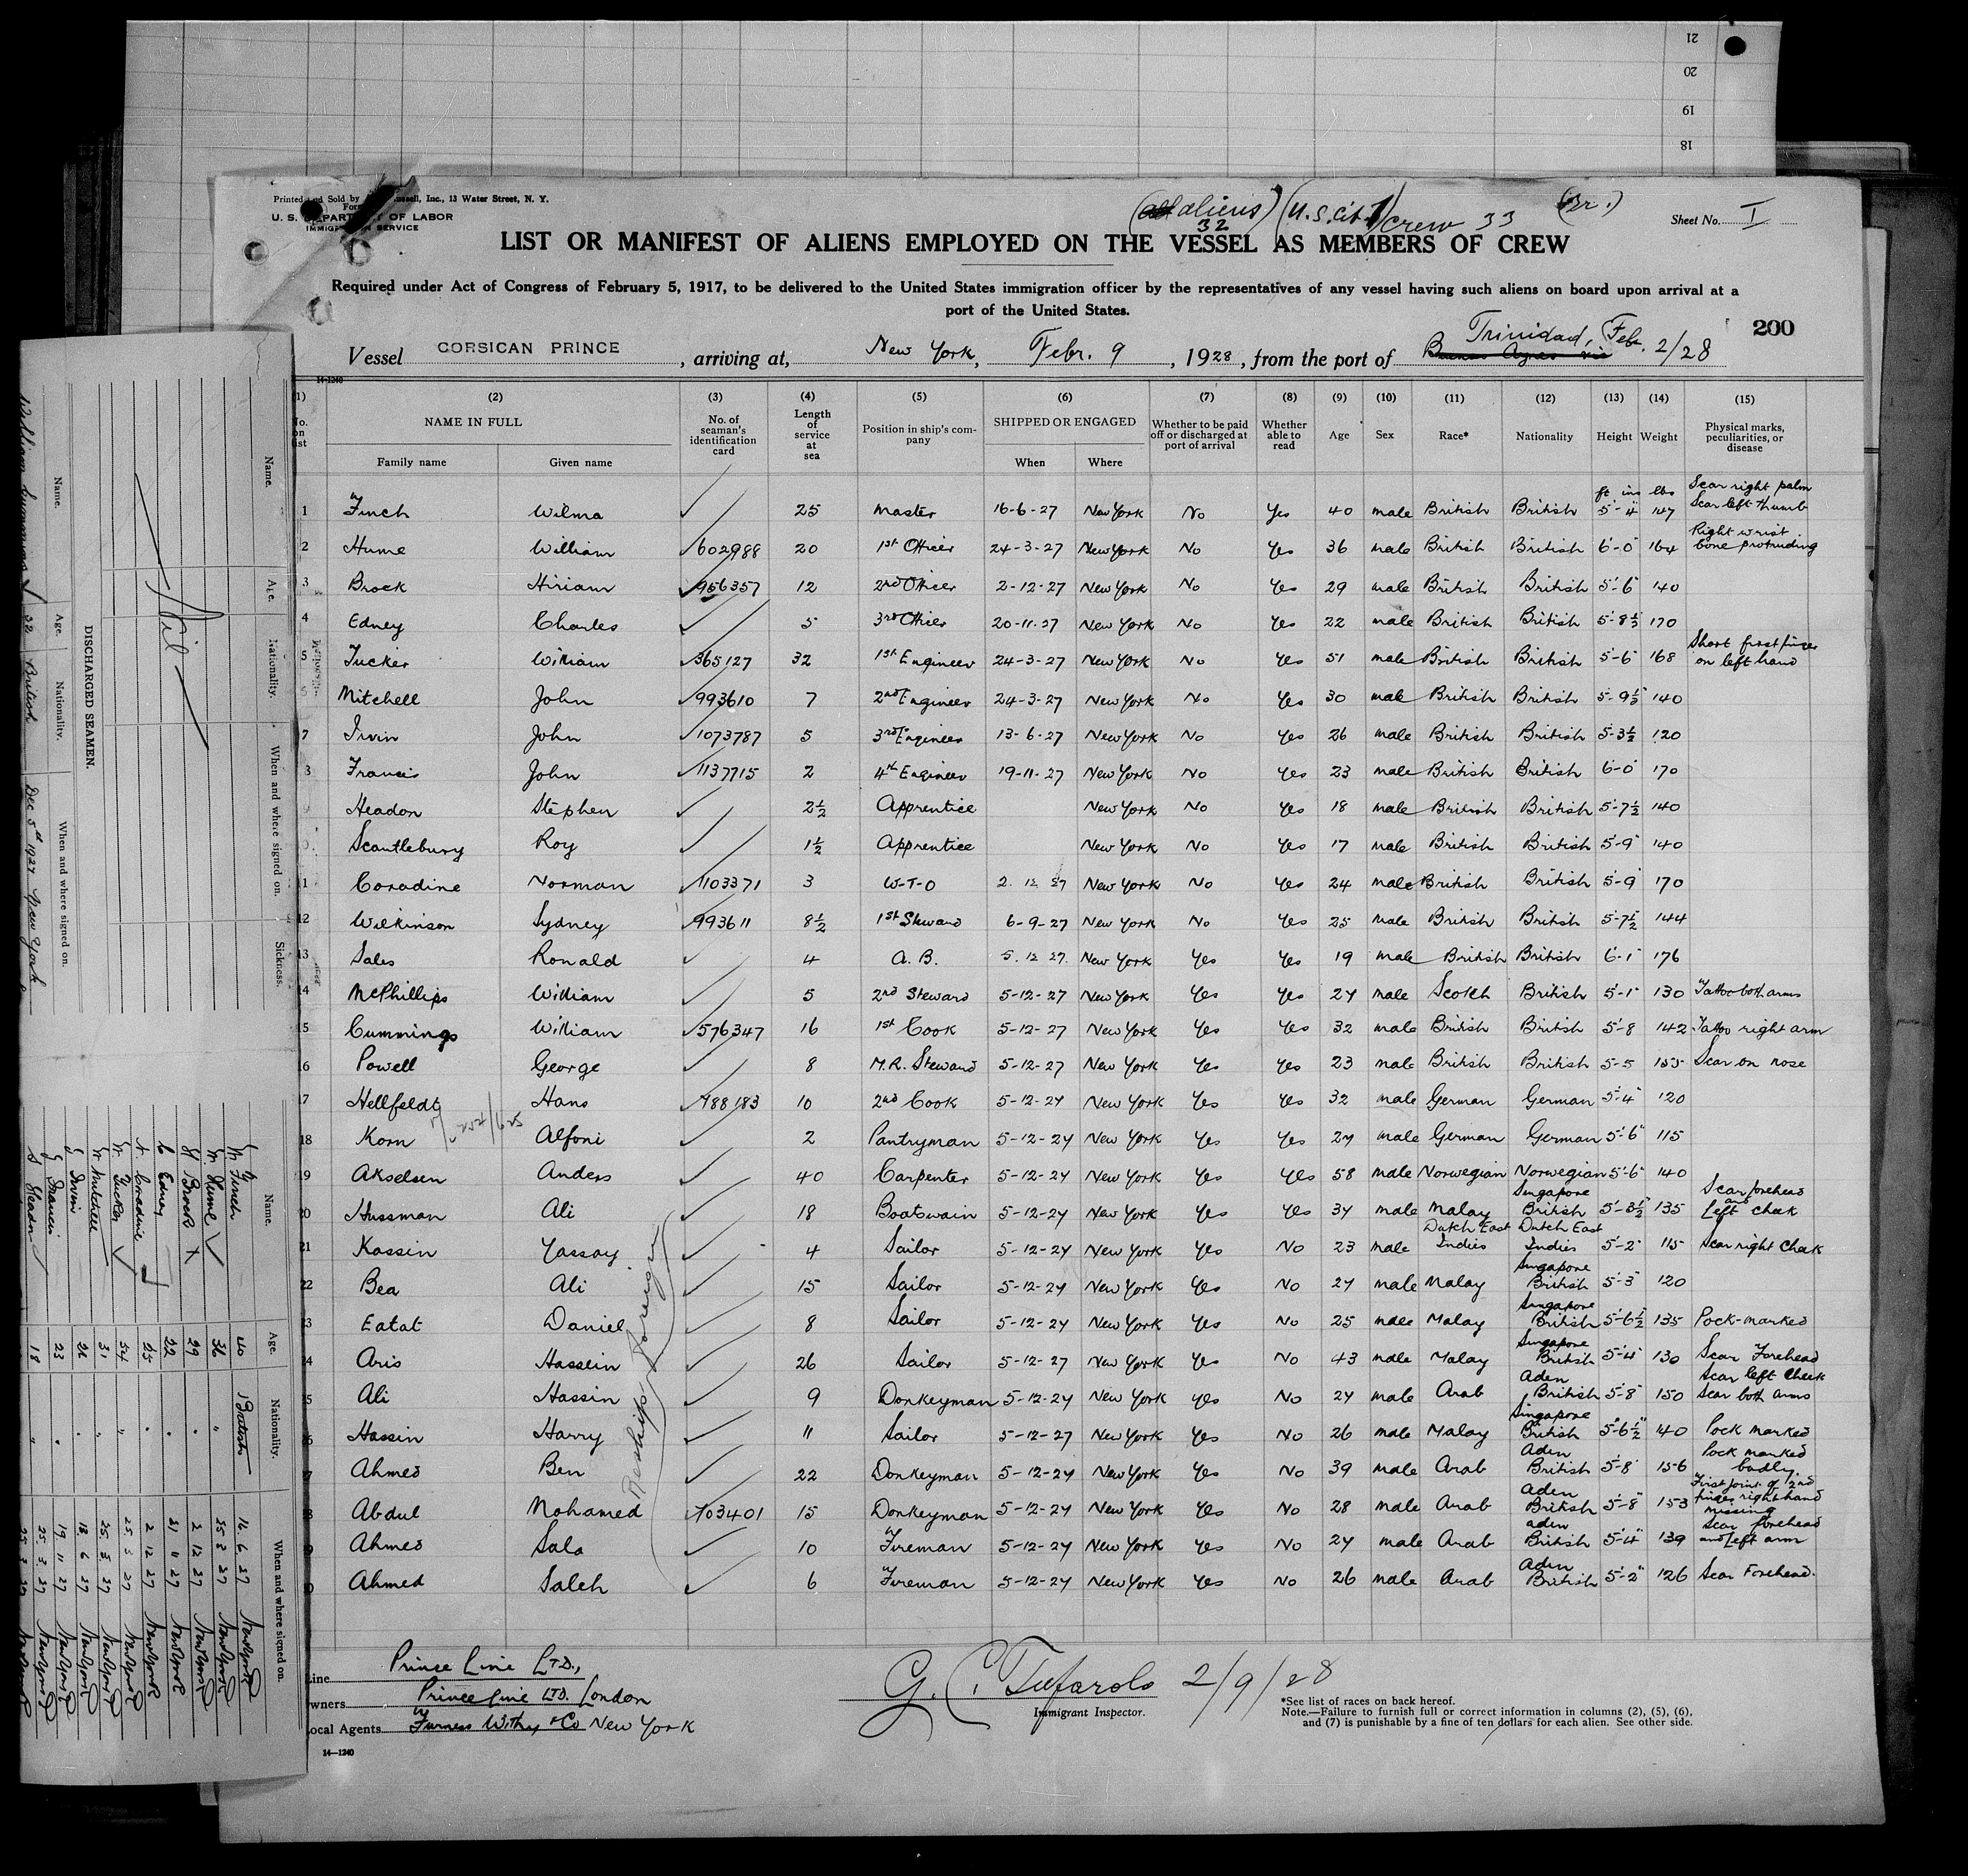 21
20
19
18
Printed and Sold by ussell, Inc., 13 Water Street, N. Y.
U. S. DEPARTMENT OF LABOR
IMMIGRATION SERVICE
(all aliens) (U.S. cit. 1) Crew 33 (Br.)
32
Sheet No. I
LIST OR MANIFEST OF ALIENS EMPLOYED ON THE VESSEL AS MEMBERS OF CREW
Required under Act of Congress of February 5, 1917, to be delivered to the United States immigration officer by the representatives of any vessel having such aliens on board upon arrival at a
port of the United States.
200
Vessel CORSICAN PRINCE, arriving at, New York, Febr. 9, 1928, from the port of Buenos Ayres via Trinidad, Feb. 2/28
14-1240
(1) (2) (3) (4) (5) (6) (7) (8) (9) (10) (11) (12) (13) (14) (15)
No. on list NAME IN FULL No. of seaman's identification card Length of service at sea Position in ship's company SHIPPED OR ENGAGED Whether to be paid off or discharged at port of arrival Whether able to read Age Sex Race* Nationality Height Weight Physical marks, peculiarities, or disease
Family name Given name When Where
ft ins lbs
1 Finch Wilma 25 Master 16-6-27 New York No Yes 40 male British British 5-4 147 Scar right palm Scar left thumb
2 Hume William 602988 20 1st Officer 24-3-27 New York No Yes 36 male British British 6-0 164 Right wrist bone protruding
3 Brock Hiriam 956357 12 2nd Officer 2-12-27 New York No Yes 29 male British British 5-6 140
4 Edney Charles 5 3rd Officer 20-11-27 New York No Yes 22 male British British 5-8½ 170
5 Tucker William 365127 32 1st Engineer 24-3-27 New York No Yes 51 male British British 5-6 168 Short first finger on left hand
Mitchell John 993610 7 2nd Engineer 24-3-27 New York No Yes 30 male British British 5-9½ 140
7 Irvin John 1073787 5 3rd Engineer 13-6-27 New York No Yes 26 male British British 5-3½ 120
Francis John 1137715 2 4th Engineer 19-11-27 New York No Yes 23 male British British 6-0 170
Headon Stephen 2½ Apprentice New York No Yes 18 male British British 5-7½ 140
Scantlebury Roy 1½ Apprentice New York No Yes 17 male British British 5-9 140
11 Coradine Norman 1103371 3 W-T-O 2.12.27 New York No Yes 24 male British British 5-9 170
12 Wilkinson Sydney 993611 8½ 1st Steward 6-9-27 New York No Yes 25 male British British 5-7½ 144
13 Sales Ronald 4 A.B. 5.12.27 New York Yes Yes 19 male British British 6-1 176
14 McPhillips William 5 2nd Steward 5-12-27 New York Yes Yes 27 male Scotch British 5-1 130 Tattoo both arms
15 Cummings William 576347 16 1st Cook 5-12-27 New York Yes Yes 32 male British British 5-8 142 Tattoo right arm
16 Powell George 8 M.R. Steward 5-12-27 New York Yes Yes 23 male British British 5-5 155 Scar on nose
17 Hellfeldt Hans 788183 10 2nd Cook 5-12-27 New York Yes Yes 32 male German German 5-4 120
18 Korn Alfoni 2 Pantryman 5-12-27 New York Yes Yes 27 male German German 5-6 115
19 Akselsen Anders 40 Carpenter 5-12-27 New York Yes Yes 58 male Norwegian Norwegian 5-6 140
20 Hussman Ali 18 Boatswain 5-12-27 New York Yes Yes 37 male Malay Singapore British 5-3½ 135 Scar forehead and Left cheek
21 Kassin Yassay 4 Sailor 5-12-27 New York Yes No 23 male Dutch East Indies Dutch East Indies 5-2 115 Scar right Cheek
22 Bea Ali 15 Sailor 5-12-27 New York Yes No 27 male Malay Singapore British 5-3 120
23 Eatat Daniel 8 Sailor 5-12-27 New York Yes No 25 male Malay Singapore British 5-6½ 135 Pock-marked
24 Aris Hassein 26 Sailor 5-12-27 New York Yes No 43 male Malay Singapore British 5-4 130 Scar Forehead
25 Ali Hassin 9 Donkeyman 5-12-27 New York Yes No 27 male Arab Aden British 5-8 150 Scar left Cheek Scar both arms
26 Hassin Harry 11 Sailor 5-12-27 New York Yes No 26 male Malay Singapore British 5-6½ 140 Pock marked
27 Ahmed Ben 22 Donkeyman 5-12-27 New York Yes No 39 male Arab Aden British 5-8 156 Pock marked badly
28 Abdul Mohamed 703401 15 Donkeyman 5-12-27 New York Yes No 28 male Arab Aden British 5-8 153 First joint of 2nd finger right hand missing
29 Ahmed Sala 10 Fireman 5-12-27 New York Yes No 27 male Arab Aden British 5-4 139 Scar forehead and Left arm
30 Ahmed Saleh 6 Fireman 5-12-27 New York Yes No 26 male Arab Aden British 5-2 126 Scar Forehead.
Reships Foreign
Line Prince Line LTD.,
Owners Prince Line LTD. London
Local Agents Furness Withy & Co New York
G. C. Tufarolo 2/9/28
Immigrant Inspector.
*See list of races on back hereof.
Note.—Failure to furnish full or correct information in columns (2), (5), (6),
and (7) is punishable by a fine of ten dollars for each alien. See other side.
14—1240
Name. Age. Nationality. When and where signed on. Sickness.
Nil
DISCHARGED SEAMEN.
Name. Age. Nationality. When and where signed on.
William Cummings 32 British Dec 5th 1927 New York
Name. Age. Nationality. When and where signed on.
W. Finch 40 British 16.6.27 New York
W. Hume 36 " New York
H Brock 29 " 2 12 27 New York
C Edney 22 " New York
N. Coradine 25 " 2 12 27 New York
W. Tucker 54 " New York
W. Mitchell 31 " New York
J Irvin 26 " 13 6 27 New York
J Francis 23 " 19 11 27 New York
S Headon 18 " New York